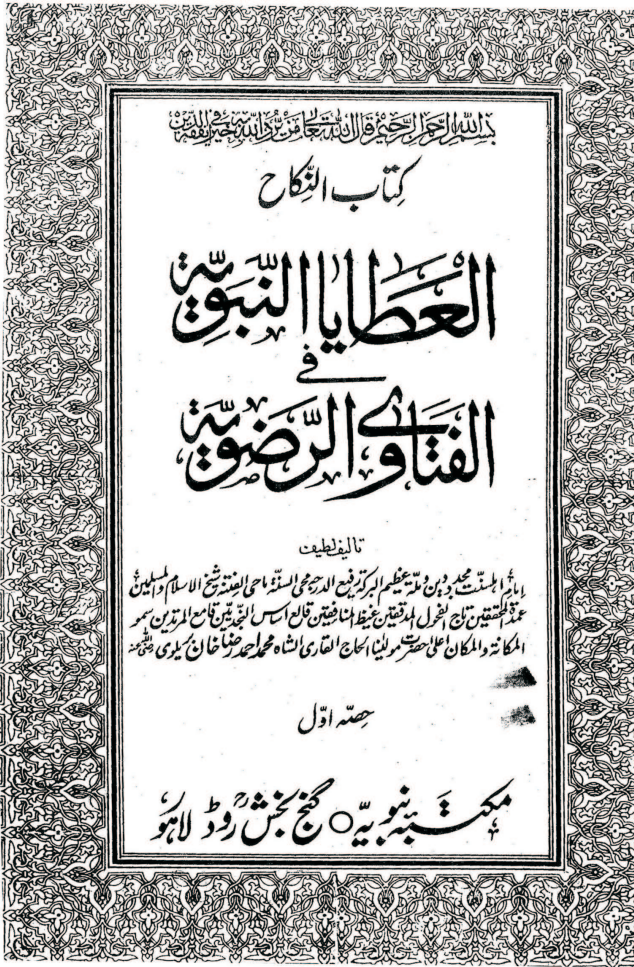 بسم الله الرحمن الرحيم قال الله تعالى من يرد الله به خيرا يفقهه في الدين
كتاب النِّكاح
العَطَايا النَّبَوِيَّة
في
الفتَاوى الرَّضَوِيَّة
تالیف لطیف
امام اہلسنّت مجدد دین و ملّۃ عظیم البرکۃ رفیع الدرجۃ محی السنّۃ ماحی الفتنۃ شیخ الاسلام والمسلمین
عمدۃ المحققین تاج الفحول المدققین غیظ المنافقین قالع اساس النّجدیّین قامع المرتدین سمو
المکانۃ والمکان اعلیٰ حضرت مولٰینا الحاج القاری الشاہ محمد احمد رضا خان بریلوی رضی اللہ عنہ
حصّہ اوّل
مکتبہ نبویّہ ○ گنج بخشؒ روڈ لاہور